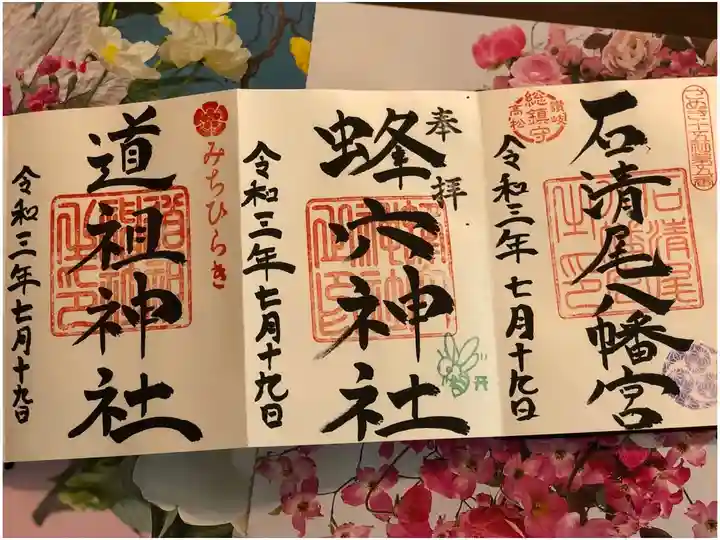 さぬき十五社第五番
石清尾八幡宮
讃岐
総鎮守
高松
令和三年七月十九日
石清尾
奉拝
蜂穴神社
令和三年七月十九日
みちひらき
道祖神社
令和三年七月十九日